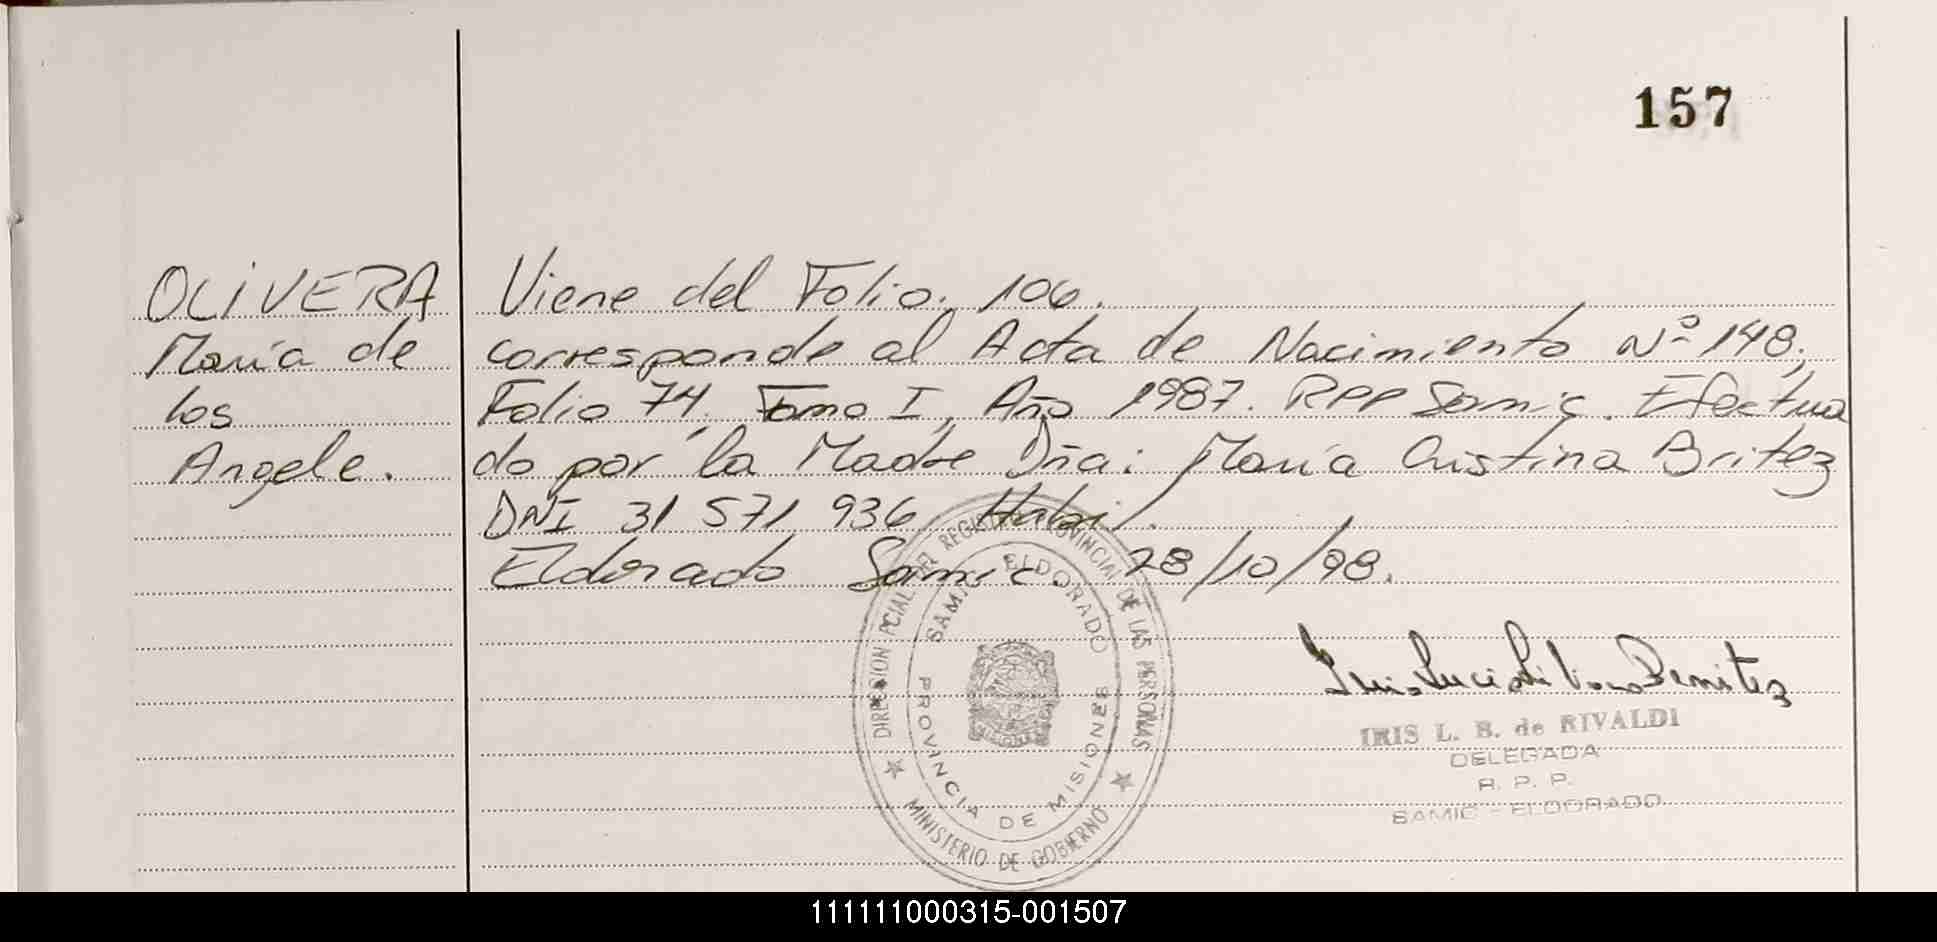 157
OLIVERA
María de
los
Angele.
Viene del Folio. 106.
corresponde al Acta de Nacimiento Nº 148,
Folio 74, Tomo I, Año 1987. RPP Samic. Efectua
do por la Madre Dña: María Cristina Britez
DNI 31 571 936 Habil.
Eldorado Samic. 28/10/98.
DIRECCION PCIAL DEL REGISTRO PROVINCIAL DE LAS PERSONAS
MINISTERIO DE GOBIERNO
SAMIC ELDORADO
PROVINCIA DE MISIONES
Benitez
IRIS L. B. de RIVALDI
DELEGADA
R. P. P.
SAMIC - ELDORADO
111111000315-001507